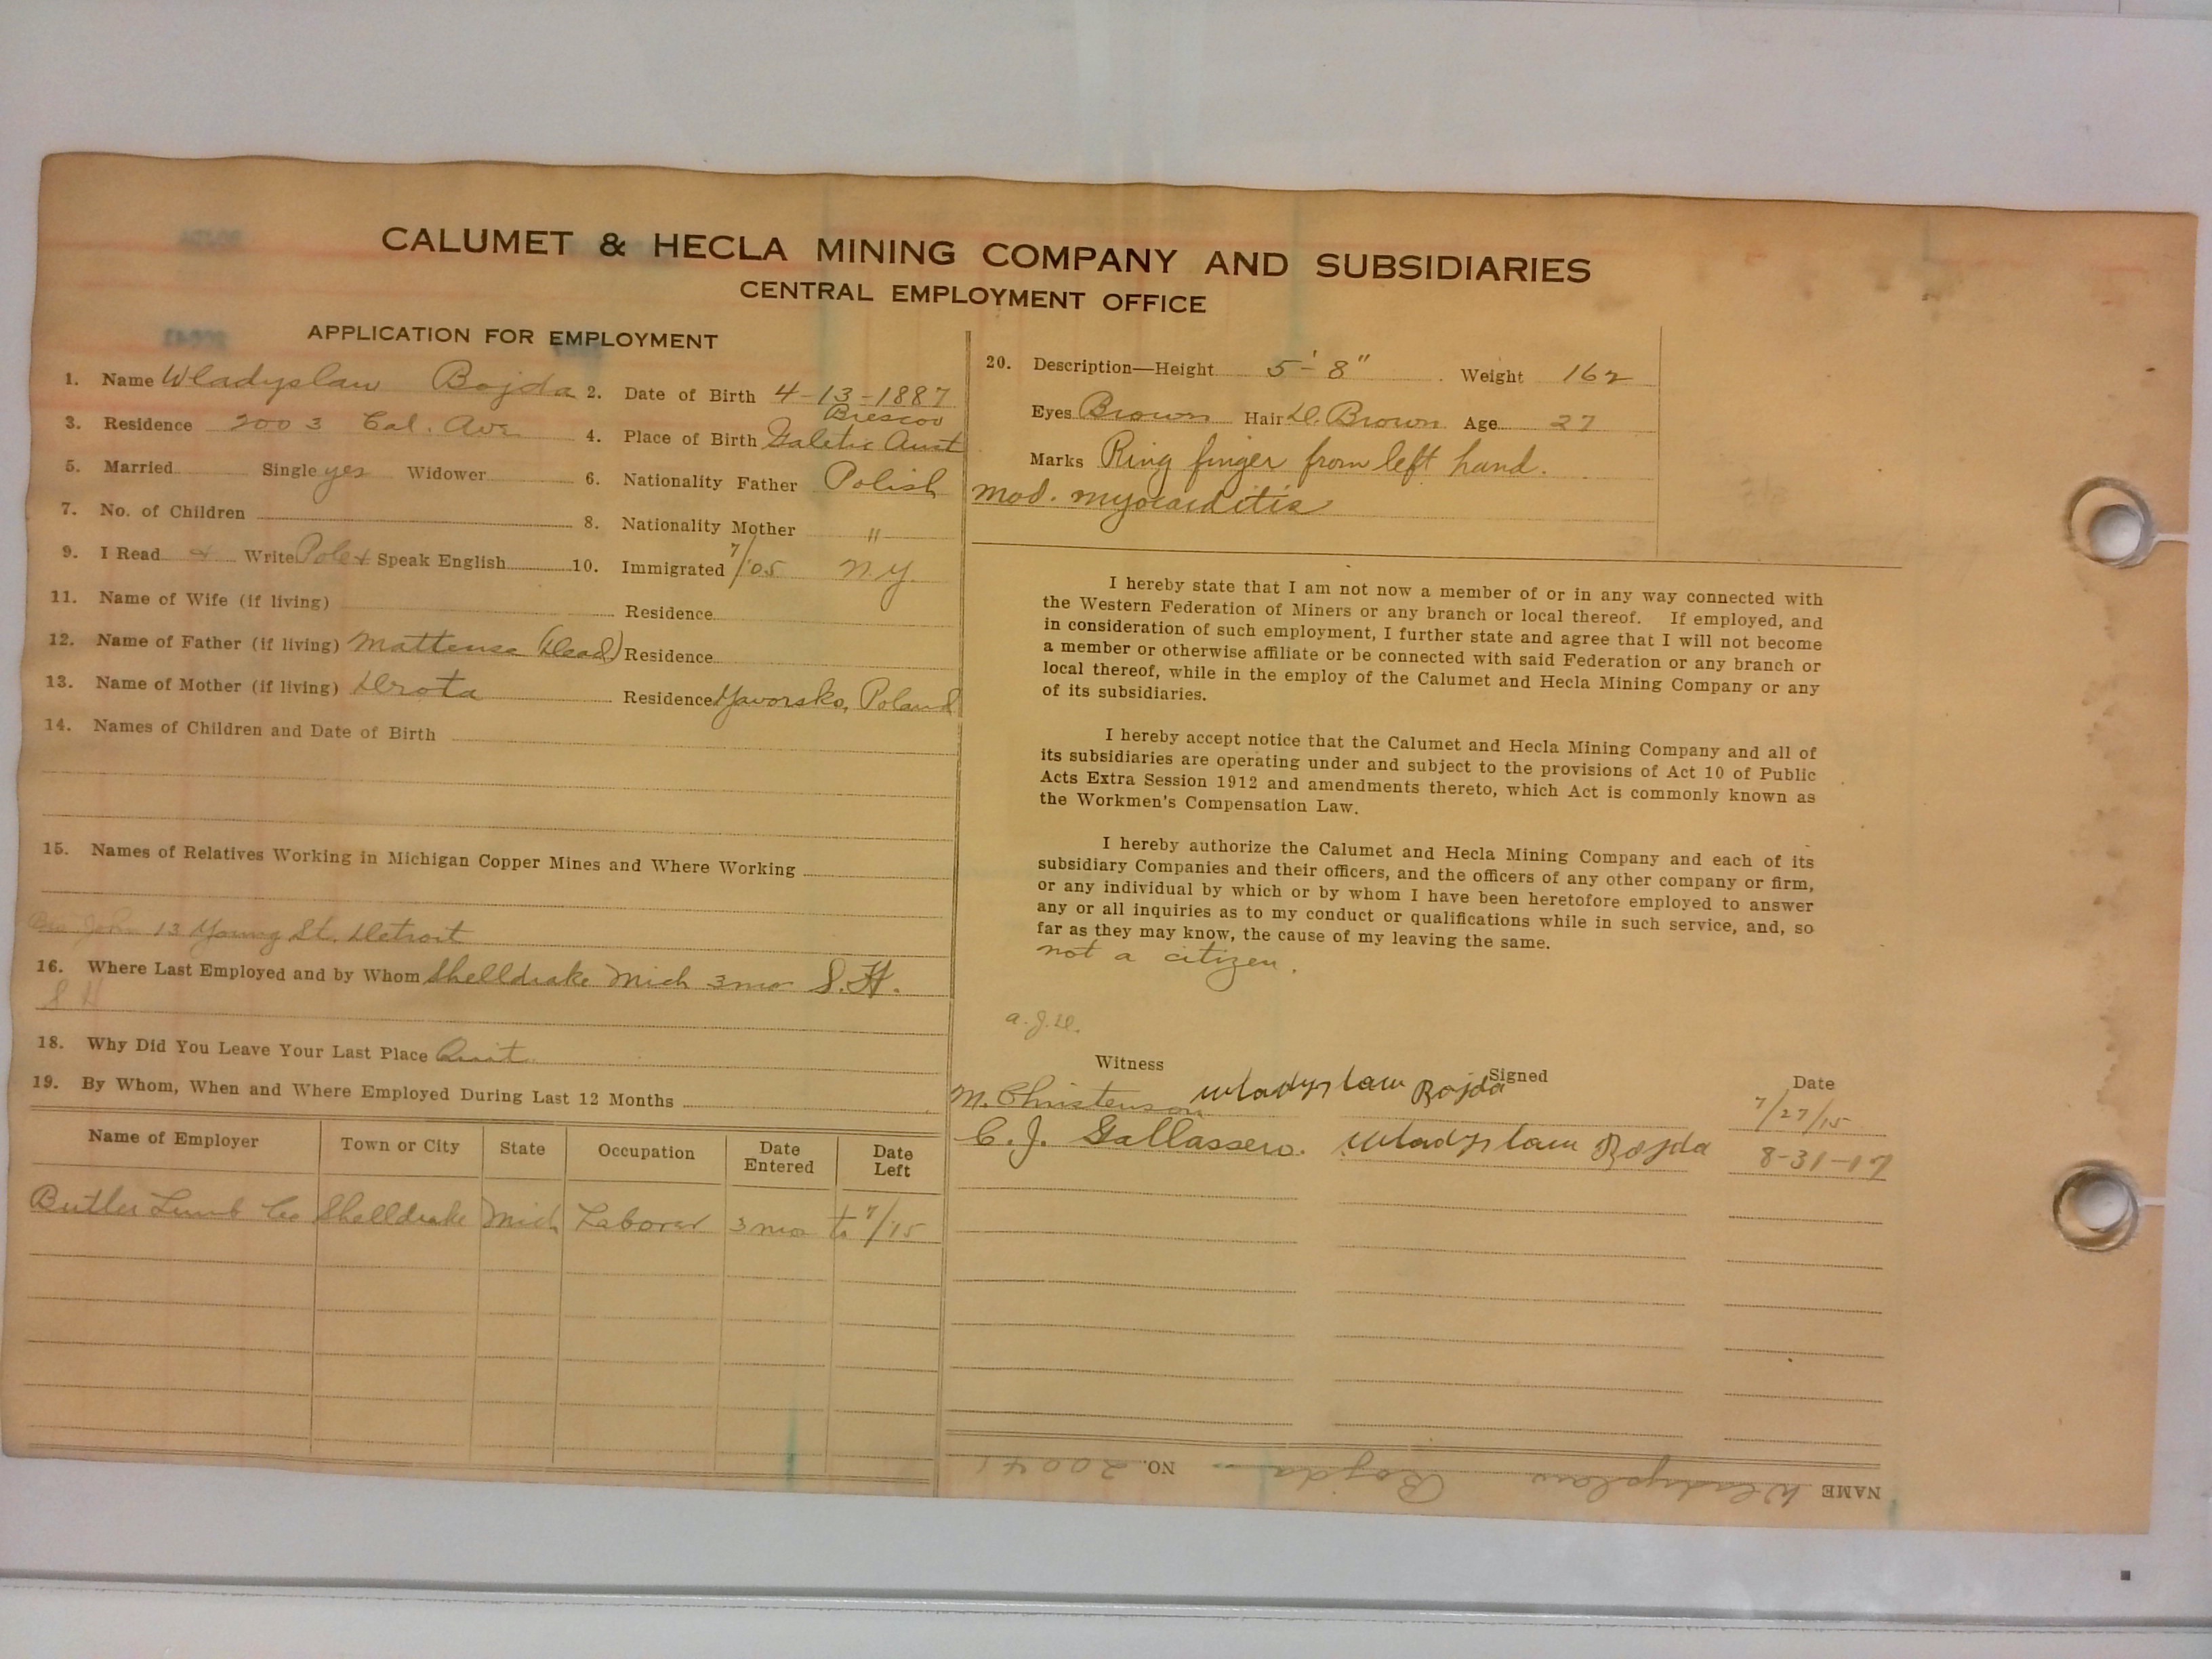 CALUMET & HECLA MINING COMPANY AND SUBSIDIARIES
CENTRAL EMPLOYMENT OFFICE
APPLICATION FOR EMPLOYMENT
1. Name Wladyslaw Bojda 2. Date of Birth 4-13-1887
3. Residence 2003 Cal. Ave 4. Place of Birth Brescov Galetic Aust
5. Married Single yes Widower 6. Nationality Father Polish
7. No. of Children 8. Nationality Mother "
9. I Read & Write Pole & Speak English 10. Immigrated 7/05 N.Y.
11. Name of Wife (if living) Residence
12. Name of Father (if living) (Dead) Residence
13. Name of Mother (if living) Drota Residence Yavorsko, Poland
14. Names of Children and Date of Birth
15. Names of Relatives Working in Michigan Copper Mines and Where Working
Bro John 13 Young St. Detroit
16. Where Last Employed and by Whom Shelldrake Mich 3 mo S.H.
S H
18. Why Did You Leave Your Last Place Quit
19. By Whom, When and Where Employed During Last 12 Months
Name of Employer Town or City State Occupation Date Entered Date Left
Butler Lumb Co Shelldrake Mich Laborer 3 mo to 7/15
20. Description—Height 5'-8" Weight 162
Eyes Brown Hair D. Brown Age 27
Marks Ring finger from left hand.
mod. myocarditis
I hereby state that I am not now a member of or in any way connected with
the Western Federation of Miners or any branch or local thereof. If employed, and
in consideration of such employment, I further state and agree that I will not become
a member or otherwise affiliate or be connected with said Federation or any branch or
local thereof, while in the employ of the Calumet and Hecla Mining Company or any
of its subsidiaries.
I hereby accept notice that the Calumet and Hecla Mining Company and all of
its subsidiaries are operating under and subject to the provisions of Act 10 of Public
Acts Extra Session 1912 and amendments thereto, which Act is commonly known as
the Workmen's Compensation Law.
I hereby authorize the Calumet and Hecla Mining Company and each of its
subsidiary Companies and their officers, and the officers of any other company or firm,
or any individual by which or by whom I have been heretofore employed to answer
any or all inquiries as to my conduct or qualifications while in such service, and, so
far as they may know, the cause of my leaving the same.
not a citizen.
a.J.D.
Witness Signed Date
M. Christenson Wladyslaw Bojda 7/27/15
C. J. Gallassero. Wladyslaw Bojda 8-31-17
NAME Wladyslaw Bojda NO. 20041